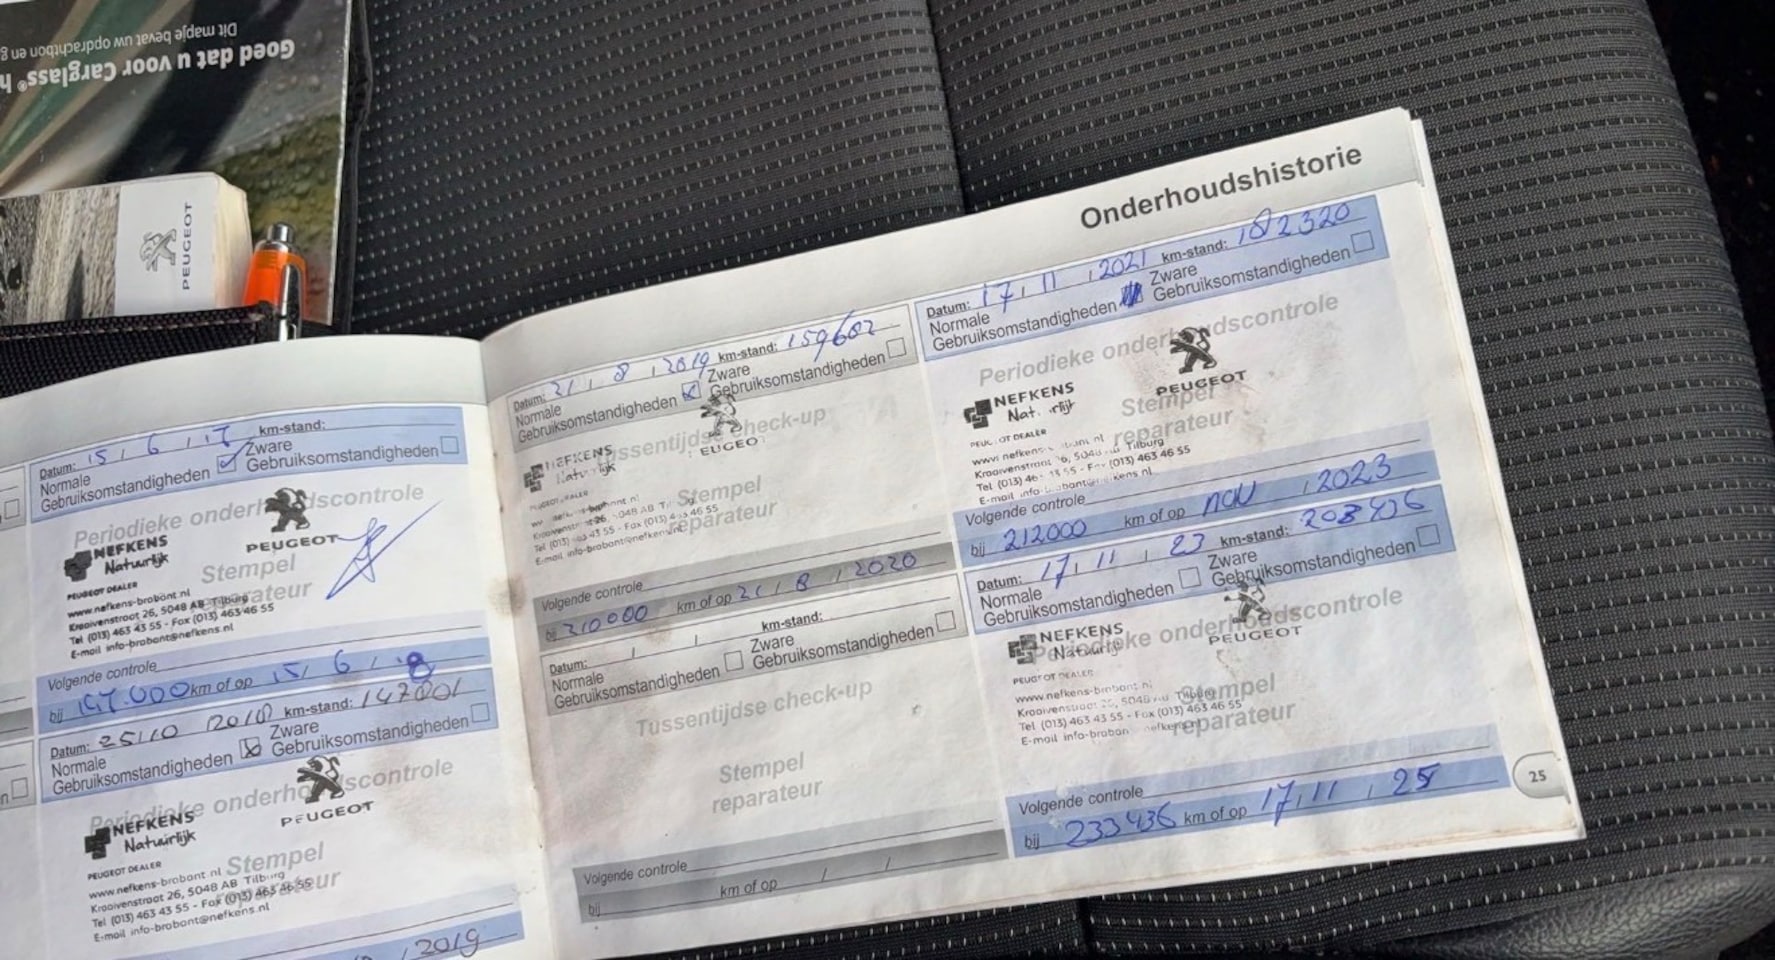 Goed dat u voor Carglass® h
Dit mapje bevat uw opdrachtbon en g
PEUGEOT
Datum: 15 / 6 / 17 km-stand:
Normale Gebruiksomstandigheden Zware Gebruiksomstandigheden
Periodieke onderhoudscontrole
NEFKENS
Natuurlijk
PEUGEOT
PEUGEOT DEALER
Stempel reparateur
www.nefkens-brabant.nl
Kraaivenstraat 26, 5048 AB Tilburg
Tel (013) 463 43 55 - Fax (013) 463 46 55
E-mail info-brabant@nefkens.nl
Volgende controle
bij km of op 15 / 6 / 18
Datum: 25/10 2018 km-stand:
Normale Gebruiksomstandigheden Zware Gebruiksomstandigheden
Periodieke onderhoudscontrole
NEFKENS
Natuurlijk
PEUGEOT
PEUGEOT DEALER
Stempel reparateur
www.nefkens-brabant.nl
Kraaivenstraat 26, 5048 AB Tilburg
Tel (013) 463 43 55 - Fax (013) 463 46 55
E-mail info-brabant@nefkens.nl
/ 2019
Datum: 21 / 8 / 2019 km-stand: 159602
Normale Gebruiksomstandigheden Zware Gebruiksomstandigheden
Tussentijdse check-up
NEFKENS
Natuurlijk
PEUGEOT
Stempel reparateur
5048 AB Tilburg
Fax (013) 463 46 55
E-mail info-brabant@nefkens.nl
Volgende controle
bij 210000 km of op 21 / 8 / 2020
Datum: / / km-stand:
Normale Gebruiksomstandigheden Zware Gebruiksomstandigheden
Tussentijdse check-up
Stempel reparateur
Volgende controle
bij km of op / /
Onderhoudshistorie
Datum: 17 / 11 / 2021 km-stand: 182320
Normale Gebruiksomstandigheden Zware Gebruiksomstandigheden
Periodieke onderhoudscontrole
NEFKENS
Natuurlijk
PEUGEOT
PEUGEOT DEALER
Stempel reparateur
Tilburg
Fax (013) 463 46 55
Volgende controle
bij 212000 km of op nov / 2023
Datum: 17 / 11 / 23 km-stand:
Normale Gebruiksomstandigheden Zware Gebruiksomstandigheden
Periodieke onderhoudscontrole
NEFKENS
Natuurlijk
PEUGEOT
PEUGEOT DEALER
Stempel reparateur
www.nefkens-brabant.nl
Kraaivenstraat 26, 5048 AB Tilburg
Tel (013) 463 43 55 - Fax (013) 463 46 55
Volgende controle
bij 233436 km of op 17 / 11 / 25
25